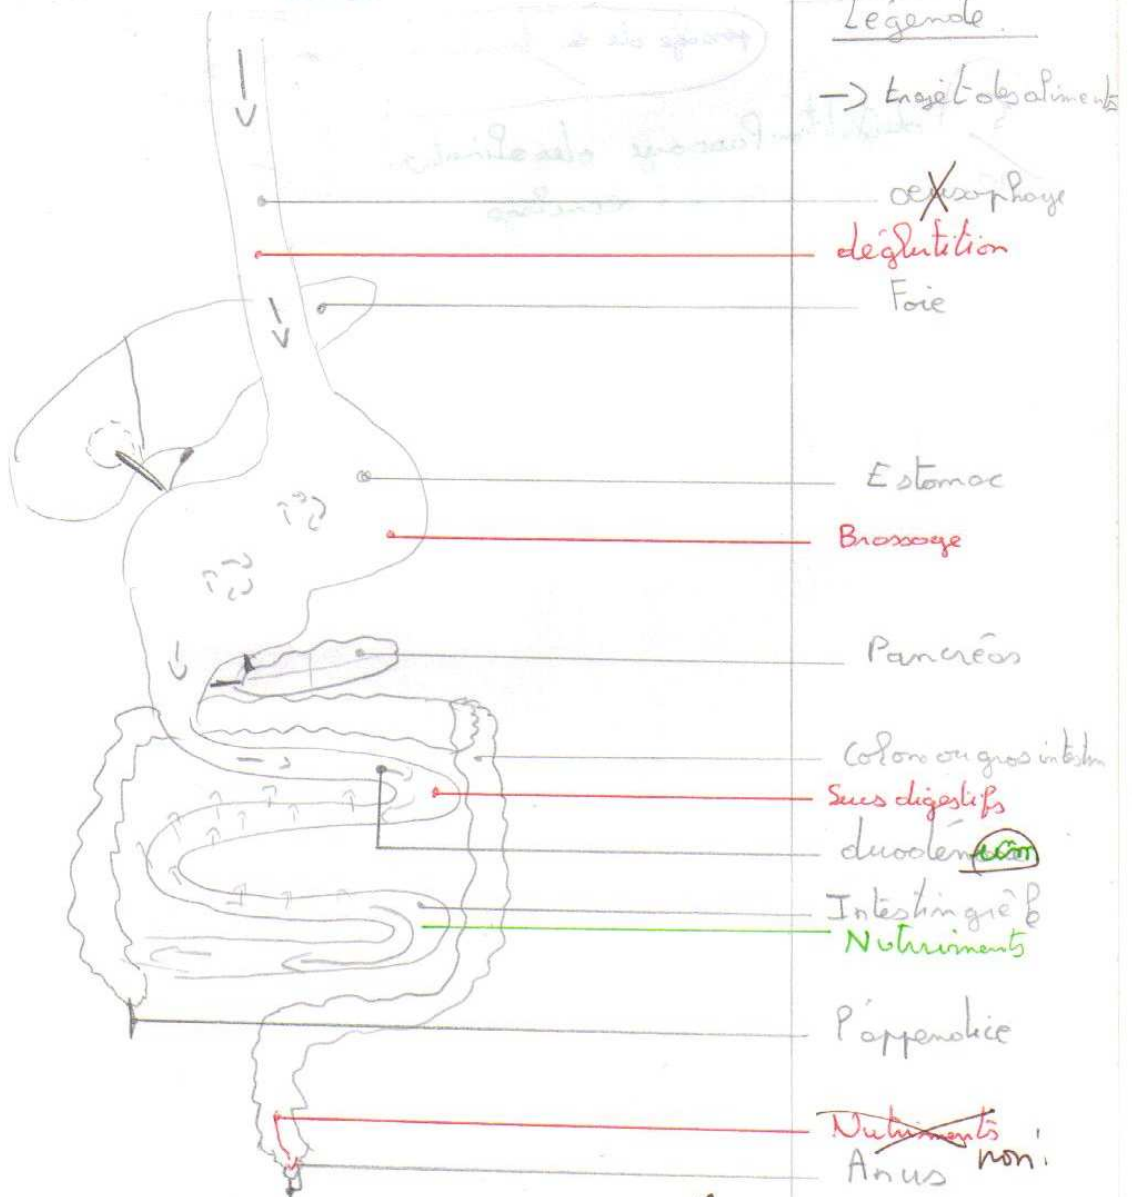 Légende
→ trajèt des aliments
oeusophage
déglutition
Foie
Estomac
Brassage
Pancréas
Colon ou gros intestin
Sucs digestifs
duodénum
Intestin grêle
Nutriments
l'appendice
Nutriments
non!
Anus